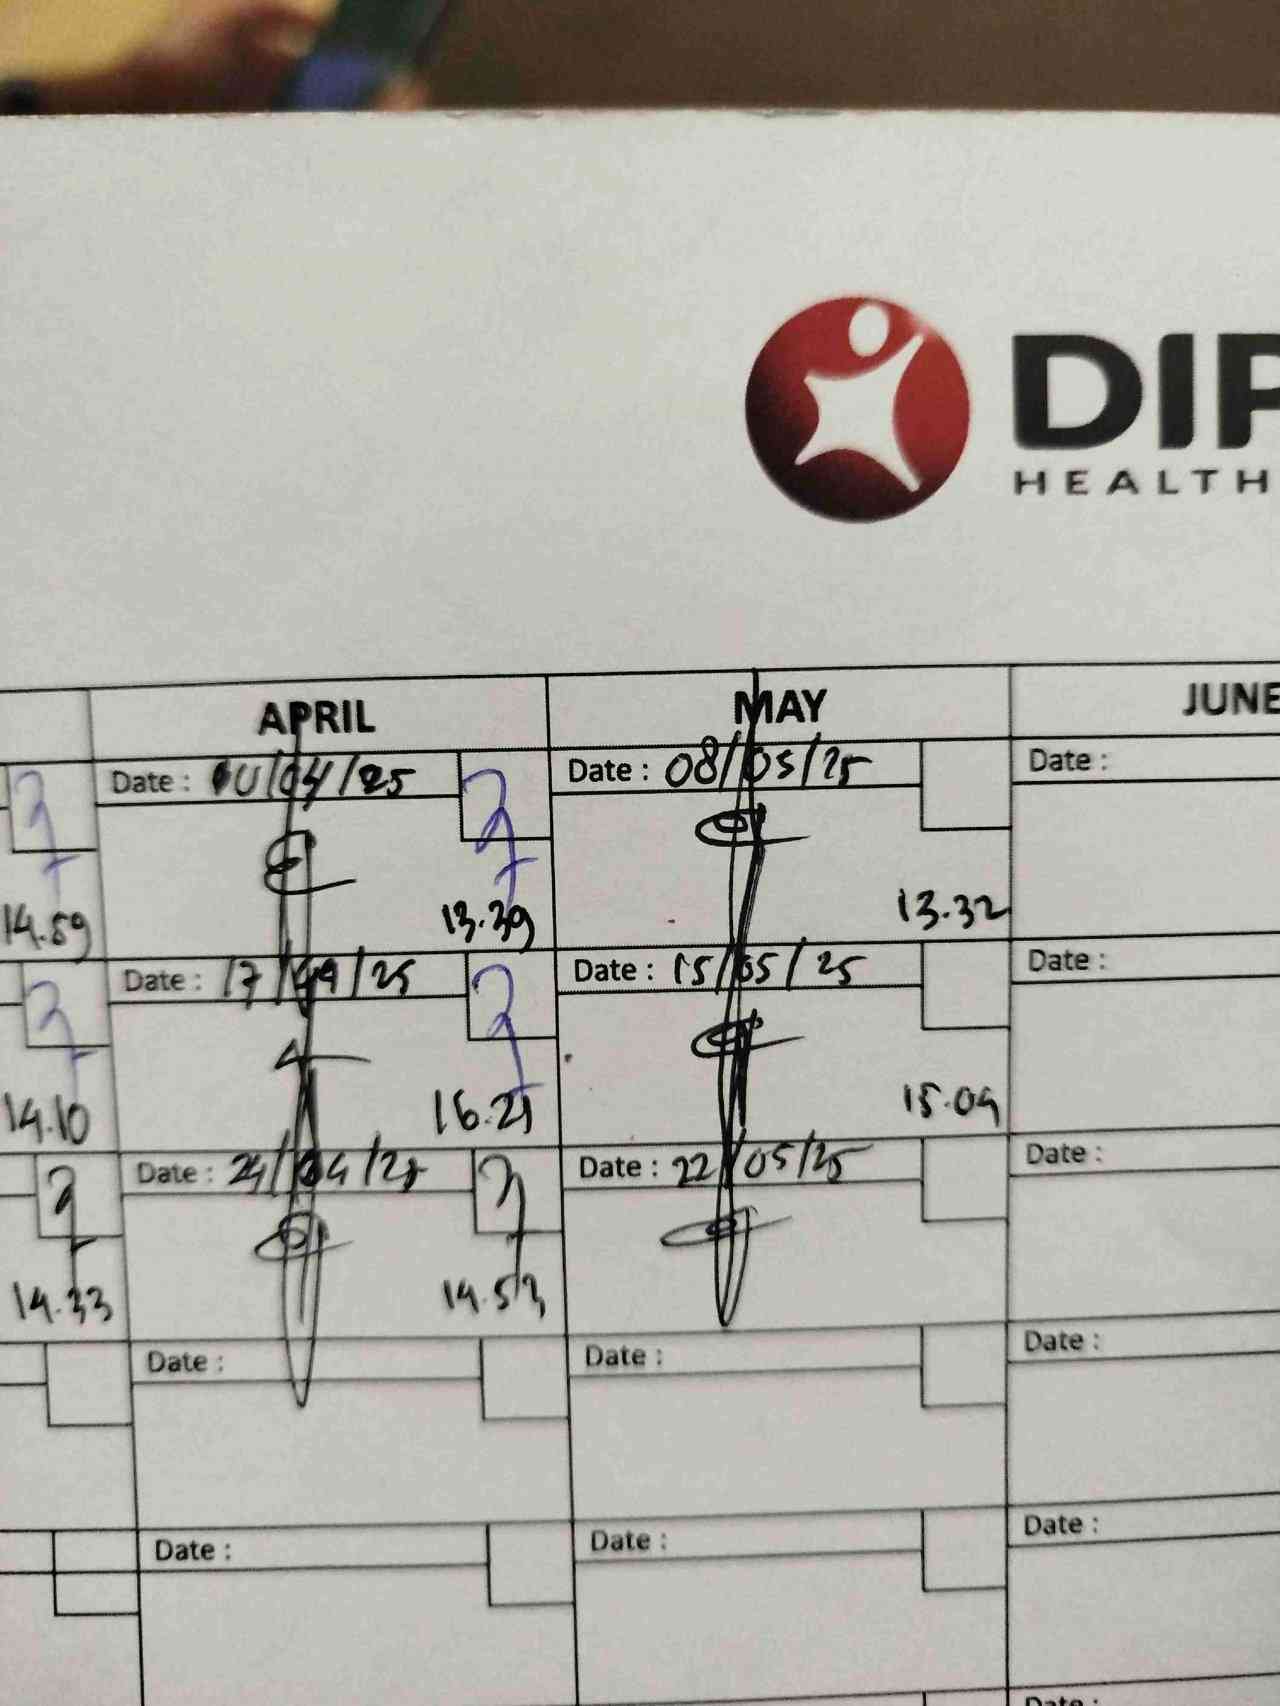 DIP
HEALTH
APRIL MAY JUNE
Date : 10/04/25 Date : 08/05/25 Date :
14.59 13.39 13.32
Date : 17/04/25 Date : 15/05/25 Date :
14.10 16.21 15.09
Date : 24/04/25 Date : 22/05/25 Date :
14.33 14.53
Date : Date : Date :
Date : Date : Date :
Date :